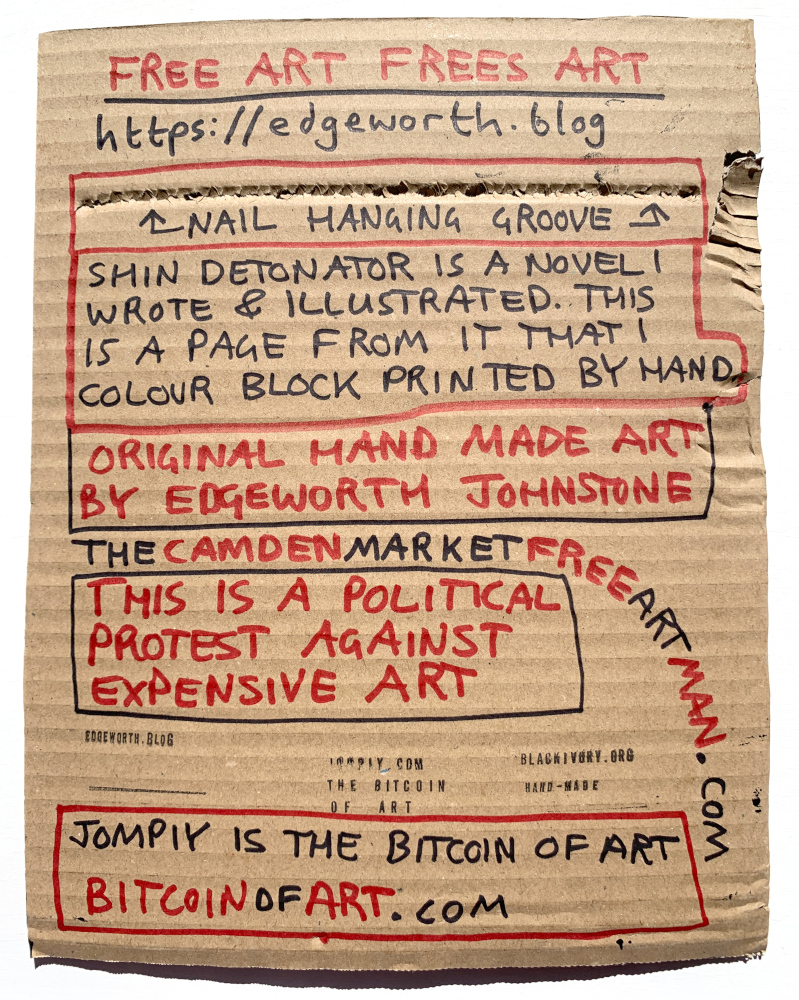 FREE ART FREES ART
https://edgeworth.blog
↑NAIL HANGING GROOVE↑
SHIN DETONATOR IS A NOVEL I
WROTE & ILLUSTRATED. THIS
IS A PAGE FROM IT THAT I
COLOUR BLOCK PRINTED BY HAND
ORIGINAL HAND MADE ART
BY EDGEWORTH JOHNSTONE
THECAMDENMARKETFREEARTMAN.COM
THIS IS A POLITICAL
PROTEST AGAINST
EXPENSIVE ART
EDGEWORTH.BLOG
JOMPIY.COM
THE BITCOIN
OF ART
BLACKIVORY.ORG
HAND-MADE
JOMPIY IS THE BITCOIN OF ART
BITCOINOFART.COM